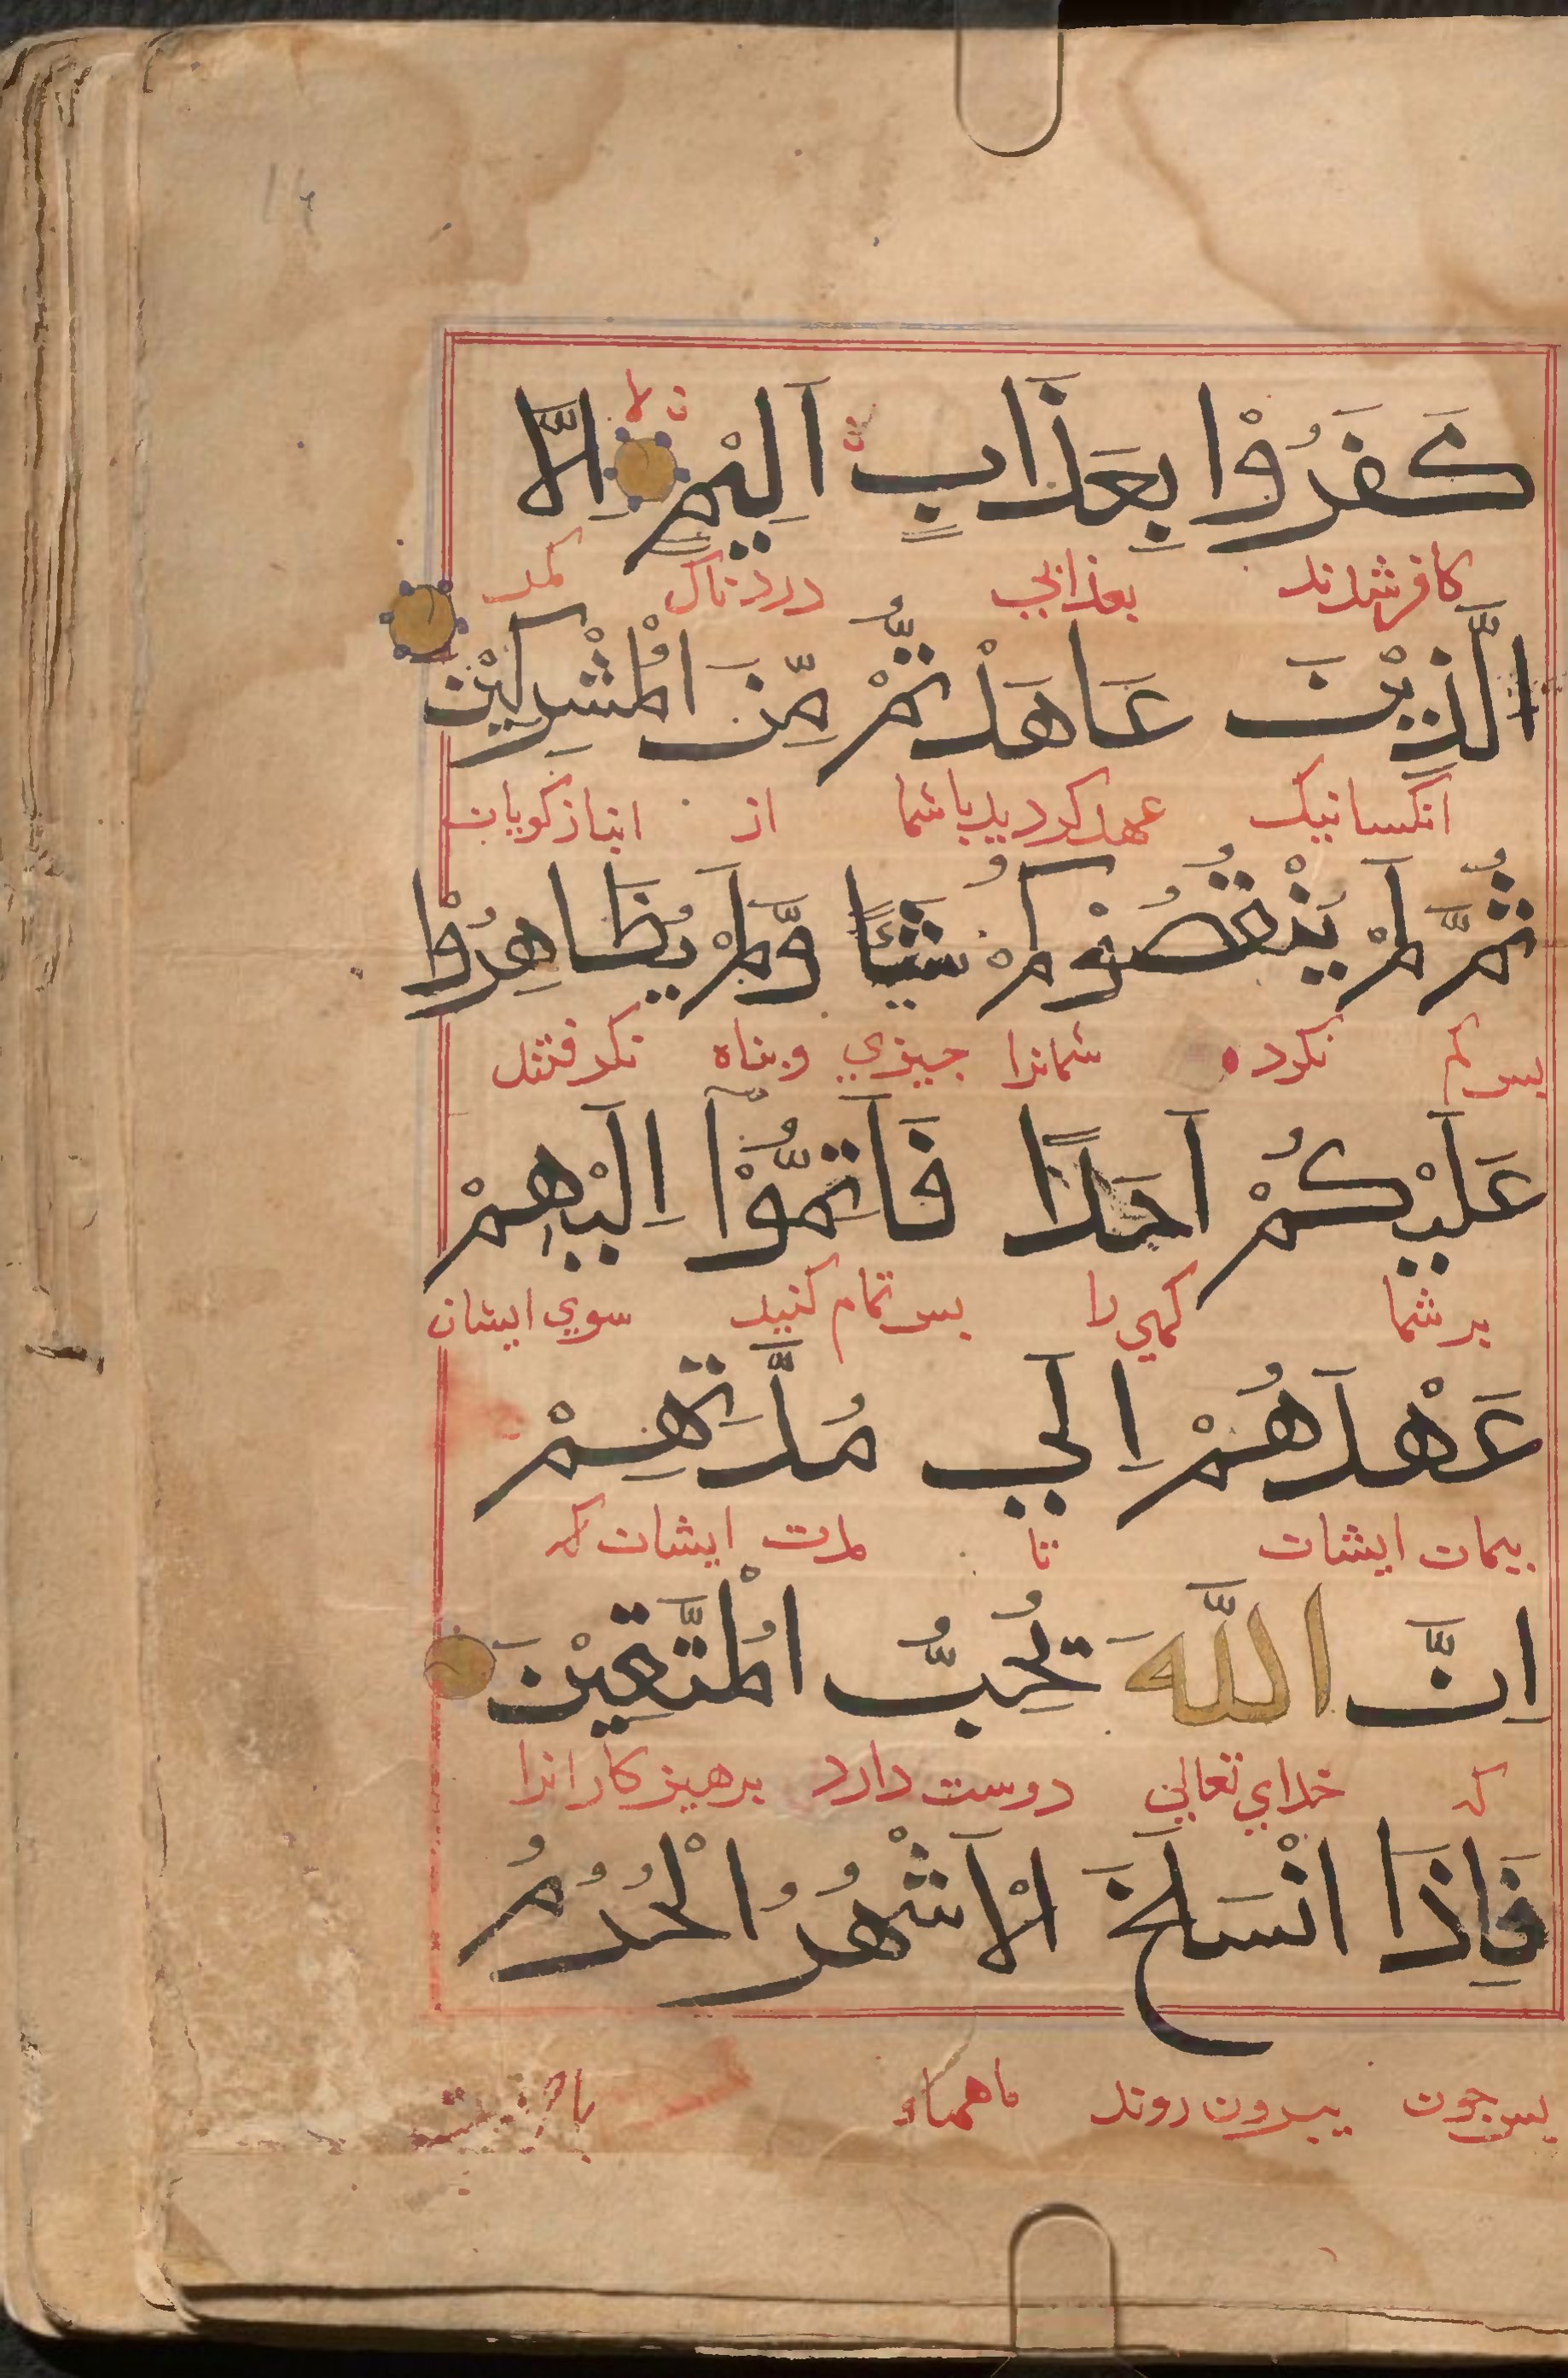 كَفَرُوْا بِعَذَابٍ اَلِيْمٍ اِلَّا
كافر شدند بعذابي دردناك مگر
الَّذِيْنَ عَاهَدْتُّمْ مِّنَ الْمُشْرِكِيْنَ
انكسانيك عهد كرديد باشما از انبازكويان
ثُمَّ لَمْ يَنْقُصُوْكُمْ شَيْئًا وَّلَمْ يُظَاهِرُوْا
بس كم نكرده شمانرا جيزي وبناه نكرفتند
عَلَيْكُمْ اَحَدًا فَاَتِمُّوْٓا اِلَيْهِمْ
بر شما كسي را بس تمام كنيد سوي ايشان
عَهْدَهُمْ اِلَي مُدَّتِهِمْ
بيمان ايشان تا مدت ايشان كه
اِنَّ اللّٰهَ يُحِبُّ الْمُتَّقِيْنَ
كه خداي تعالي دوست دارد برهيزكارانرا
فَاِذَا انْسَلَخَ الْاَشْهُرُ الْحُرُمُ
بس جون بيرون روند ماههاء